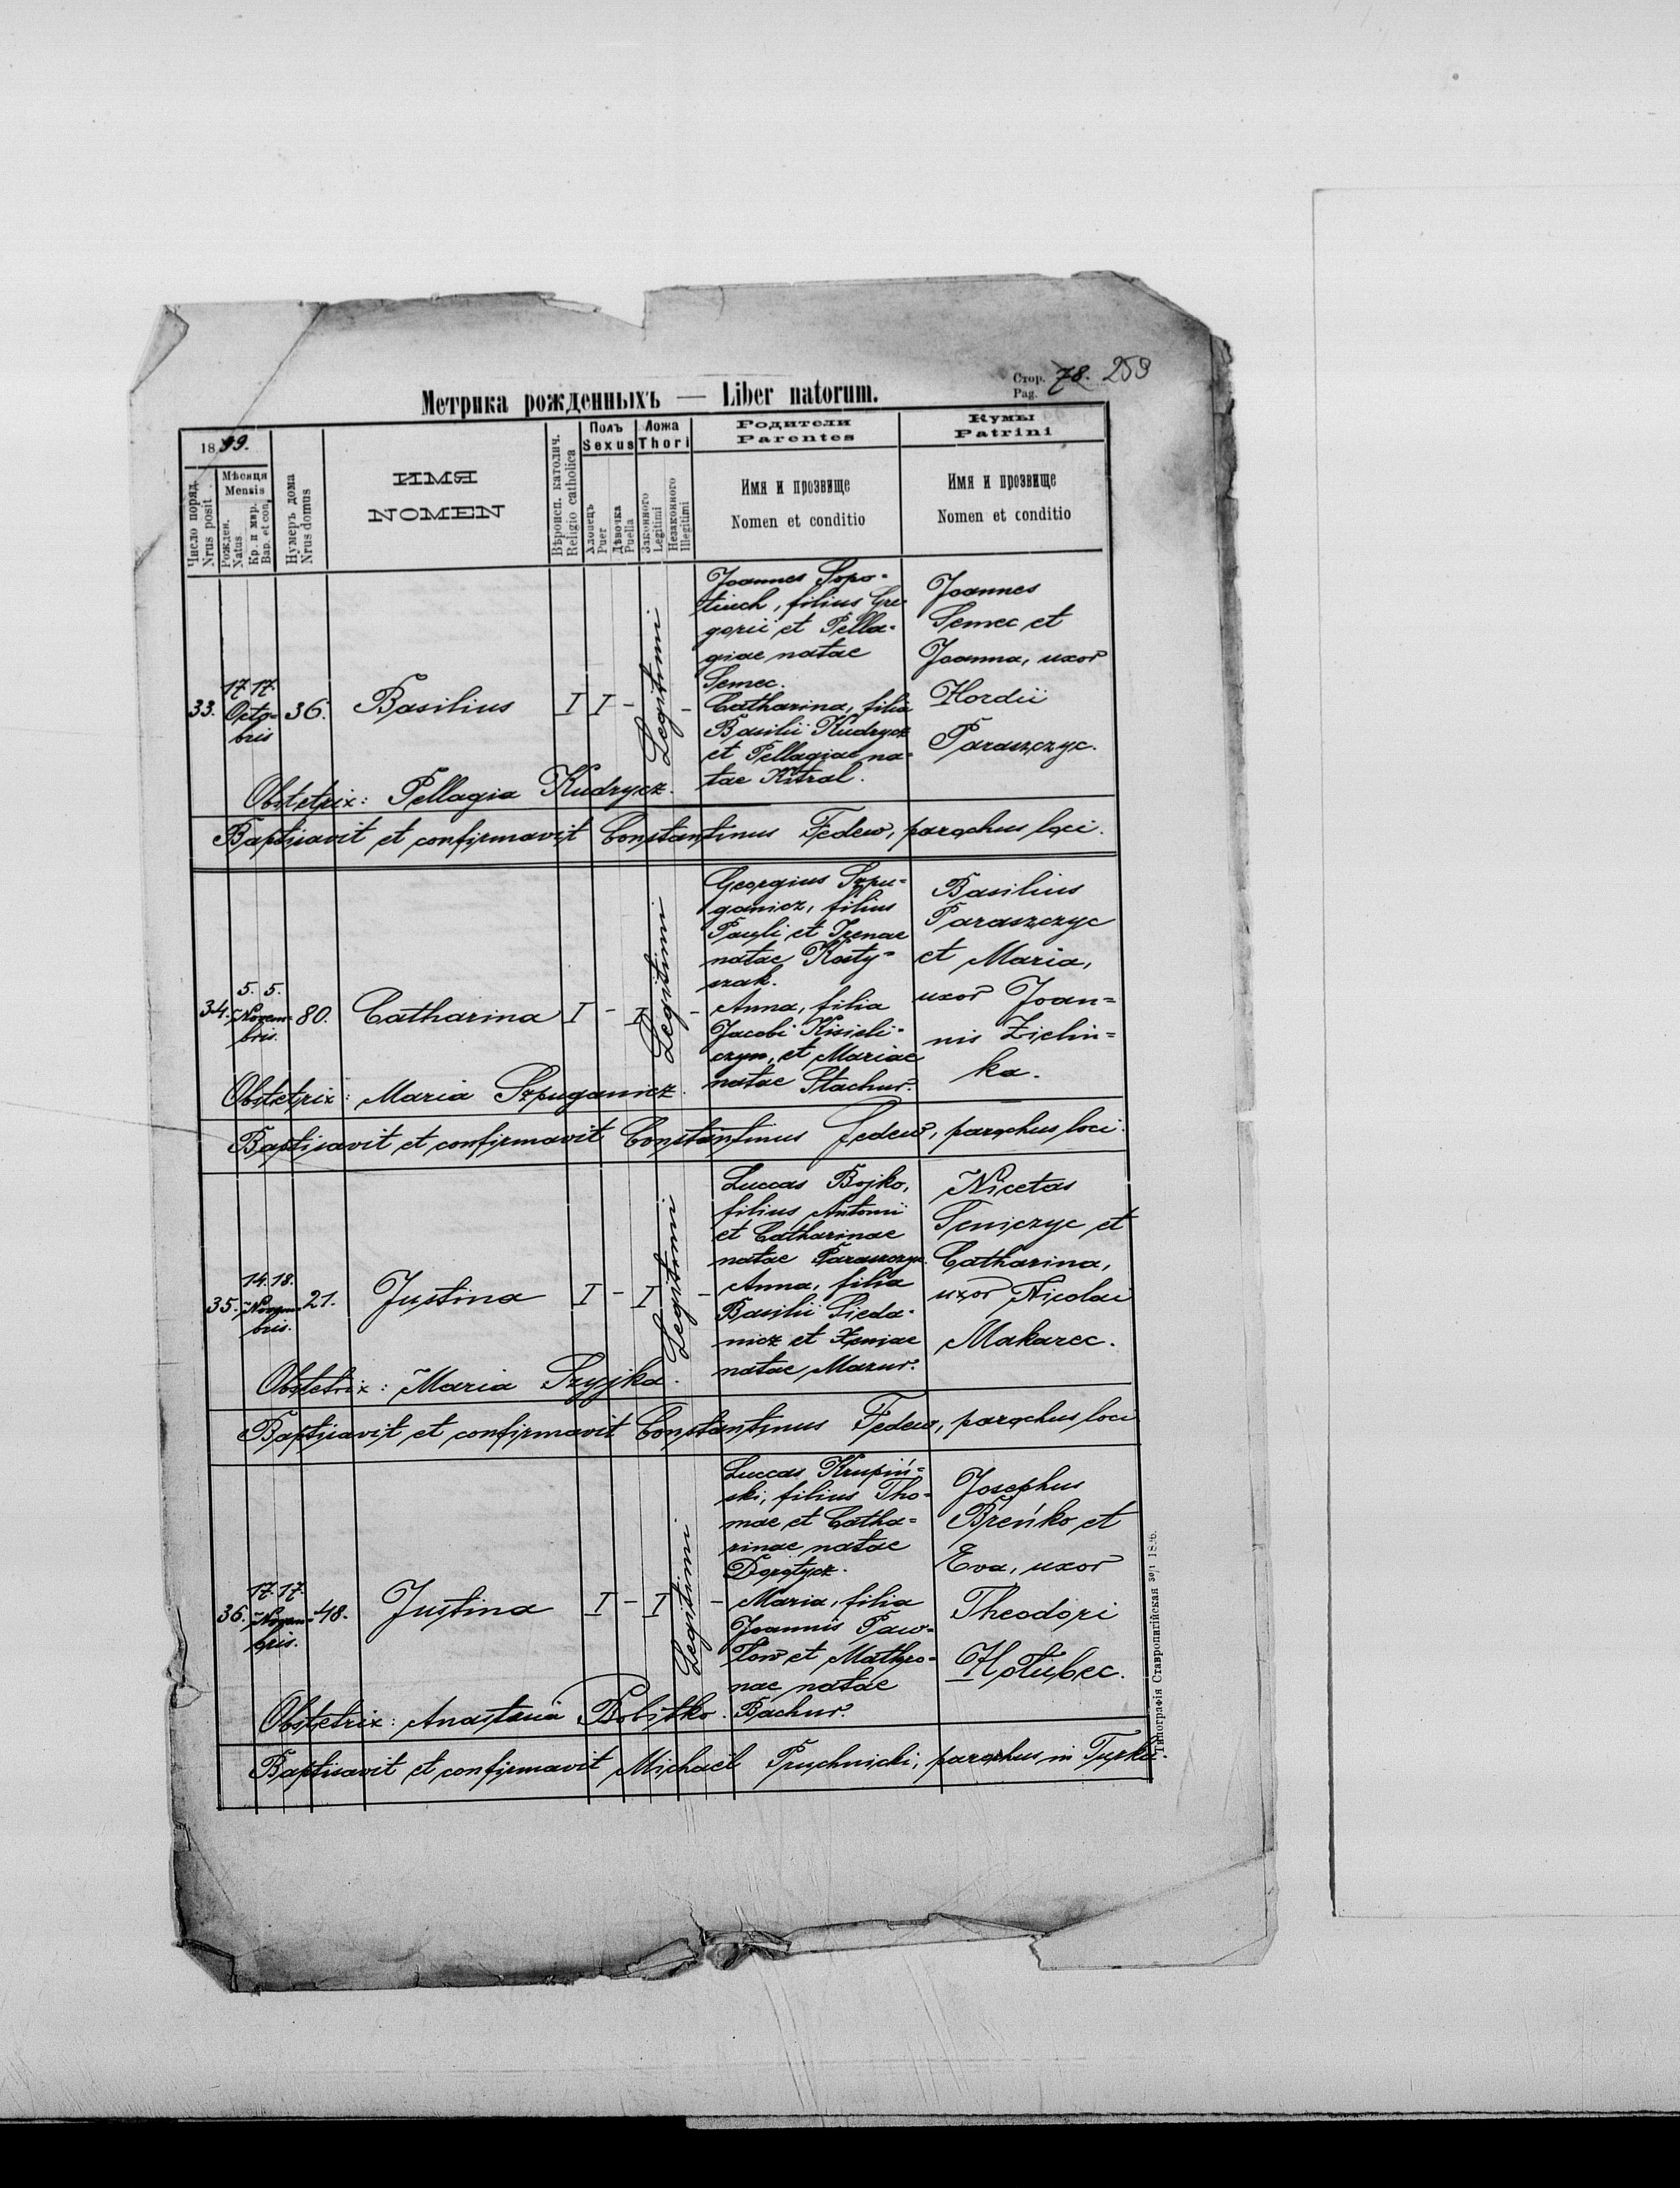 Стор. 78. 259
Pag.
Метрика рожденныхъ — Liber natorum.
1899.
Число поряд.
Nrus posit.
Мѣсяця
Mensis
Рожден.
Natus
Кр. и мир.
Bap. et con.
Нумеръ дома
Nrus domus
ИМЯ
NOMEN
Вѣроисп. католич.
Religio catholica
Полъ
Sexus
Хлопецъ
Puer
Дѣвочка
Puella
Ложа
Thori
Законного
Legitimi
Незаконного
Illegitimi
Родители
Parentes
Имя и прозвище
Nomen et conditio
Кумы
Patrini
Имя и прозвище
Nomen et conditio
33.
17. 17.
Octo-
bris
36.
Basilius
I I - Legitimi -
Joannes Sopo-
tiuch, filius Gre-
gorii et Pella-
giae natae
Semec.
Catharina, filia
Basilii Kudrycz
et Pellagiae na-
tae Kitral.
Joannes
Semec et
Joanna, uxor
Hordii
Paraszczyc.
Obstetrix: Pellagia Kudrycz.
Baptisavit et confirmavit Constantinus Fedew, parochus loci.
34.
5. 5.
Novem-
bris.
80.
Catharina
I - I Legitimi -
Georgius Szpu-
ganicz, filius
Pauli et Irenae
natae Kosty-
szak.
Anna, filia
Jacobi Kisieli-
czyn, et Mariae
natae Stachur.
Basilius
Paraszczyc
et Maria,
uxor Joan-
nis Zielin-
ka.
Obstetrix: Maria Szpuganicz.
Baptisavit et confirmavit Constantinus Fedew, parochus loci.
35.
14. 18.
Novem-
bris.
21.
Justina
I - I Legitimi -
Luccas Bojko,
filius Antonii
et Catharinae
natae Paraszczyc.
Anna, filia
Basilii Sieda-
nicz et Xeniae
natae Mazur.
Nicetas
Seniczyc et
Catharina,
uxor Nicolai
Makarec.
Obstetrix: Maria Szyjka.
Baptisavit et confirmavit Constantinus Fedew, parochus loci
36.
17. 17.
Novem-
bris.
48.
Justina
I - I Legitimi -
Luccas Krupiń-
ski, filius Tho-
mae et Catha-
rinae natae
Dorotycz.
Maria, filia
Joannis Paw-
łow et Mathro-
nae natae
Bachur.
Josephus
Breńko et
Eva, uxor
Theodori
Hołubec.
Obstetrix: Anastasia Bobitko.
Baptisavit et confirmavit Michaël Pruchnicki, parochus in Turka.
Типографія Ставропигійская